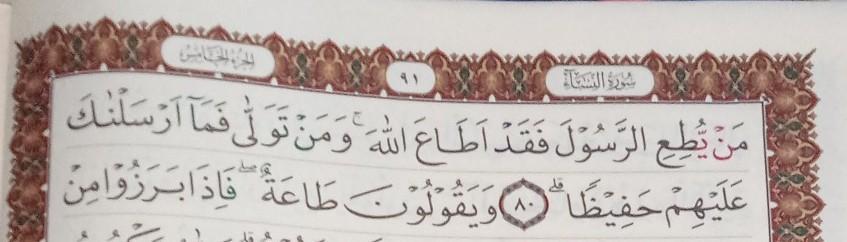 الجزء الخامس ٩١ سورة النساء
مَنْ يُّطِعِ الرَّسُوْلَ فَقَدْ اَطَاعَ اللّٰهَ ۚ وَمَنْ تَوَلّٰى فَمَآ اَرْسَلْنٰكَ
عَلَيْهِمْ حَفِيْظًا ۗ ٨٠ وَيَقُوْلُوْنَ طَاعَةٌ ۖ فَاِذَا بَرَزُوْا مِنْ